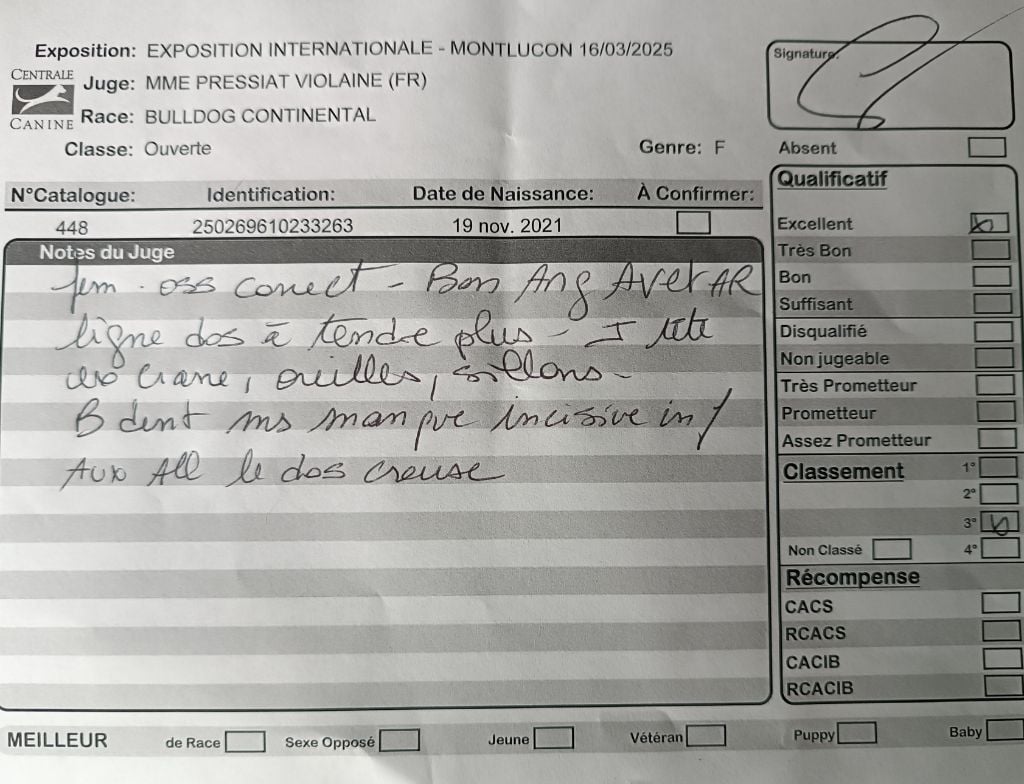 Exposition: EXPOSITION INTERNATIONALE - MONTLUCON 16/03/2025
CENTRALE CANINE
Juge: MME PRESSIAT VIOLAINE (FR)
Race: BULLDOG CONTINENTAL
Classe: Ouverte
Genre: F
N°Catalogue: Identification: Date de Naissance: À Confirmer:
448 250269610233263 19 nov. 2021
Notes du Juge
fem. oss correct - Bon Ang Av et AR
ligne dos à tendre plus - J tête
crane, oreilles, sillons -
B dent ms manque incisive inf
Aux All le dos creuse
Signature:
Absent
Qualificatif
Excellent
Très Bon
Bon
Suffisant
Disqualifié
Non jugeable
Très Prometteur
Prometteur
Assez Prometteur
Classement 1°
2°
3°
Non Classé 4°
Récompense
CACS
RCACS
CACIB
RCACIB
MEILLEUR de Race Sexe Opposé Jeune Vétéran Puppy Baby